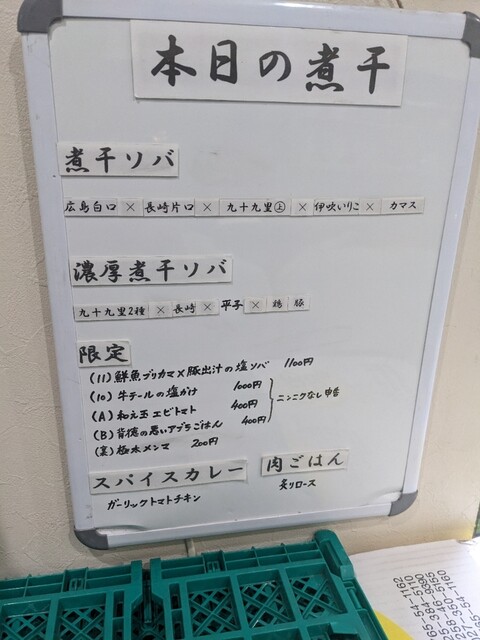 本日の煮干
煮干ソバ
広島白口 × 長崎片口 × 九十九里㊤ × 伊吹いりこ × カマス
濃厚煮干ソバ
九十九里2種 × 長崎 × 平子 × 鶏 豚
限定
(11) 鮮魚ブリカマ×豚出汁の塩ソバ 1100円
(10) 牛テールの塩かけ 1000円
(A) 和え玉 エビトマト 400円
(B) 背徳の思いアブラごはん 400円
ニンニクなし申告
(裏) 極太メンマ 200円
スパイスカレー
ガーリックトマトチキン
肉ごはん
炙りロース